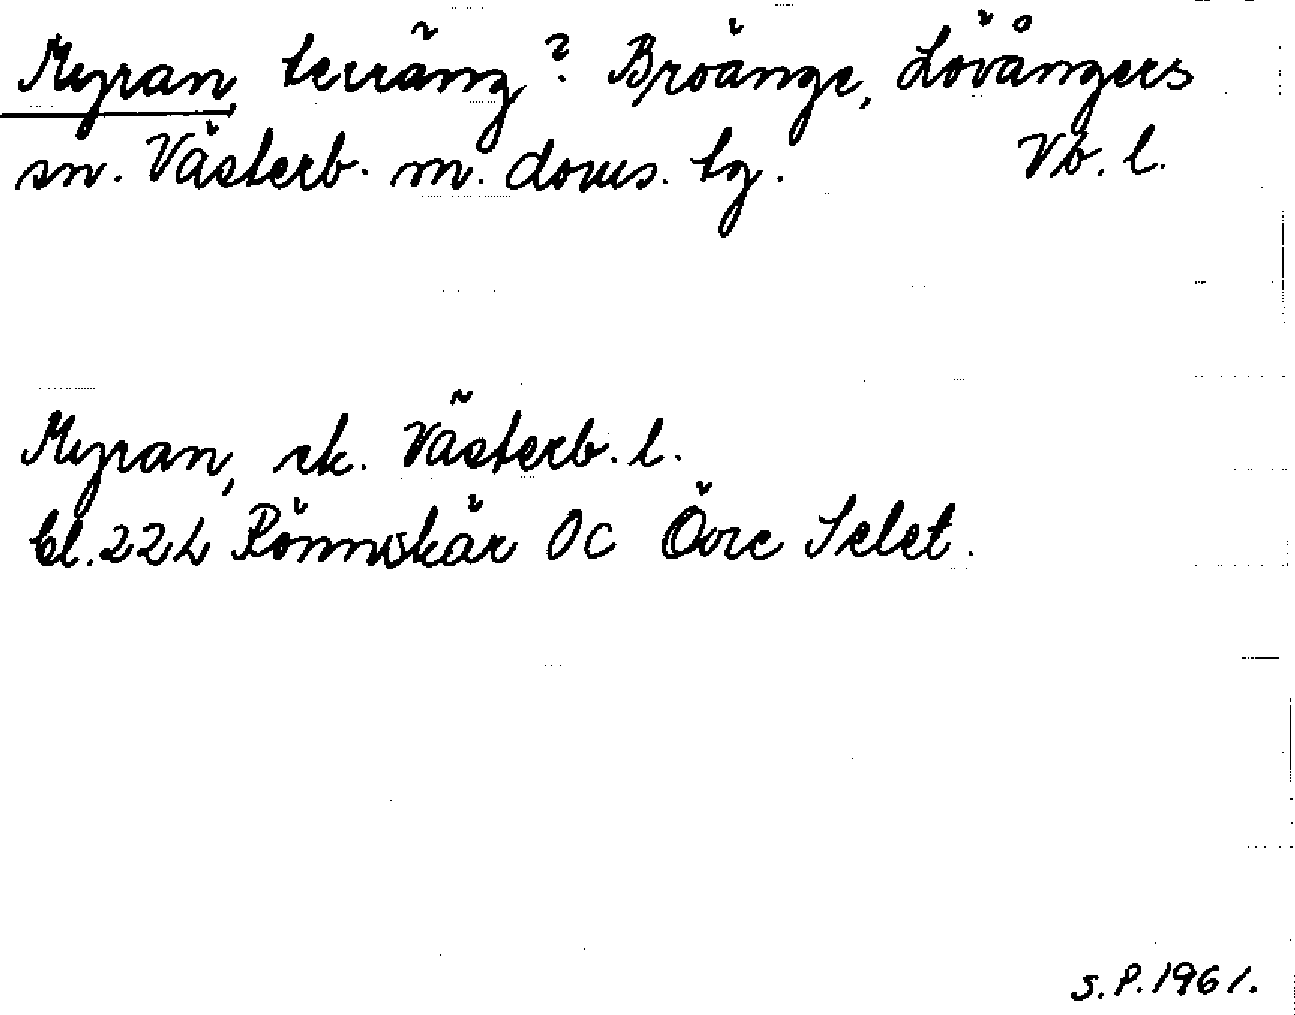 Myran, terräng? Broänge, Lövångers
sn. Västerb. m. doms. tg. Vb. l.
Myran, rk. Västerb. l.
bl. 22L Rönnskär Oc Övre Selet.
S.P. 1961.